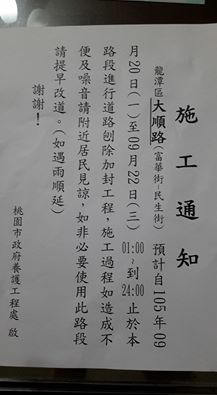 施工通知
龍潭區大順路(富華街-民生街) 預計自105年09
月20日(一)至09月22日(三) 01:00~到24:00止於本
路段進行道路刨除加封工程,施工過程如造成不
便及噪音請附近居民見諒,如非必要使用此路段
請提早改道。(如遇雨順延)
謝謝!
桃園市政府養護工程處 啟